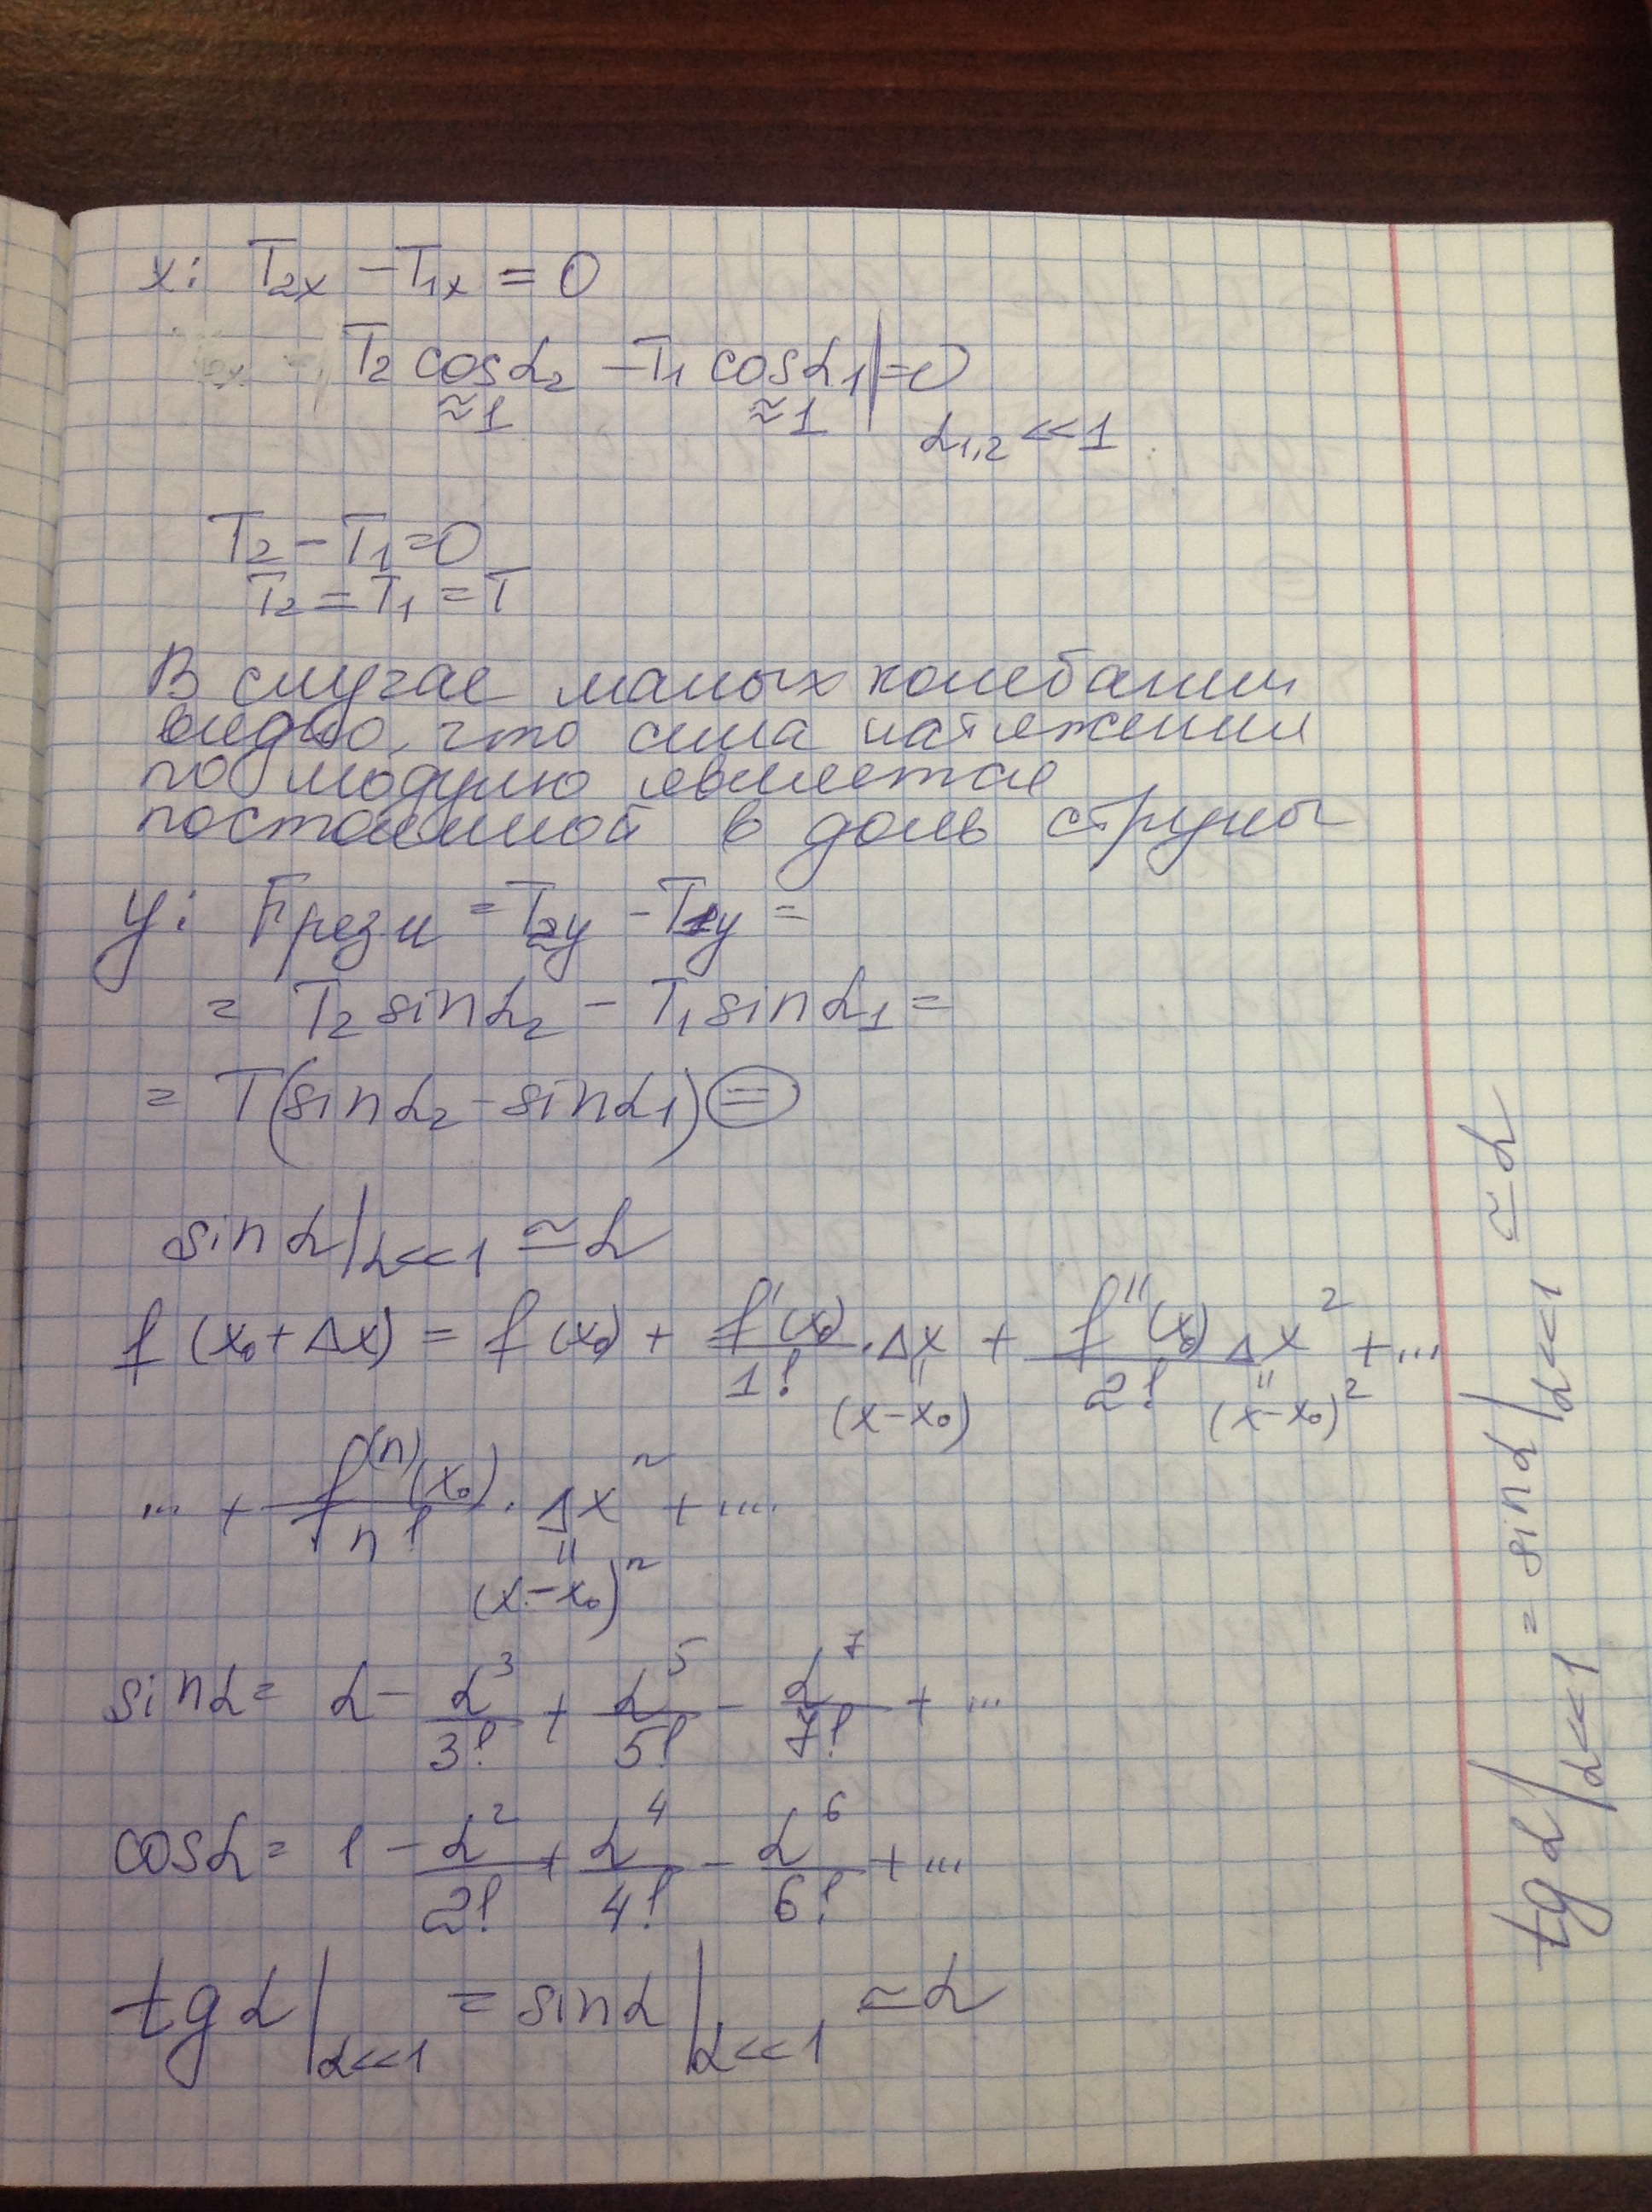 x: T₂ₓ − T₁ₓ = 0
T₂ cosα₂ − T₁ cosα₁ | = 0
≈1 ≈1 α₁,₂ << 1
T₂ − T₁ = 0
T₂ = T₁ = T
В случае малых колебании
видно, что сила натяжения
по модулю является
постоянной в доль струны
y: Fрез y = T₂y − T₁y =
= T₂ sinα₂ − T₁ sinα₁ =
= T(sinα₂ − sinα₁) =
sinα |α<<1 ≃ α
f(x₀ + Δx) = f(x₀) + f'(x₀)/1! · Δx + f''(x₀)/2! Δx² + ...
" (x−x₀) " (x−x₀)²
... + f⁽ⁿ⁾(x₀)/n! · Δxⁿ + ....
" (x−x₀)ⁿ
sinα = α − α³/3! + α⁵/5! − α⁷/7! + ...
cosα = 1 − α²/2! + α⁴/4! − α⁶/6! + ...
tgα |α<<1 = sinα |α<<1 ≃ α
tgα |α<<1 = sinα |α<<1 ≃ α